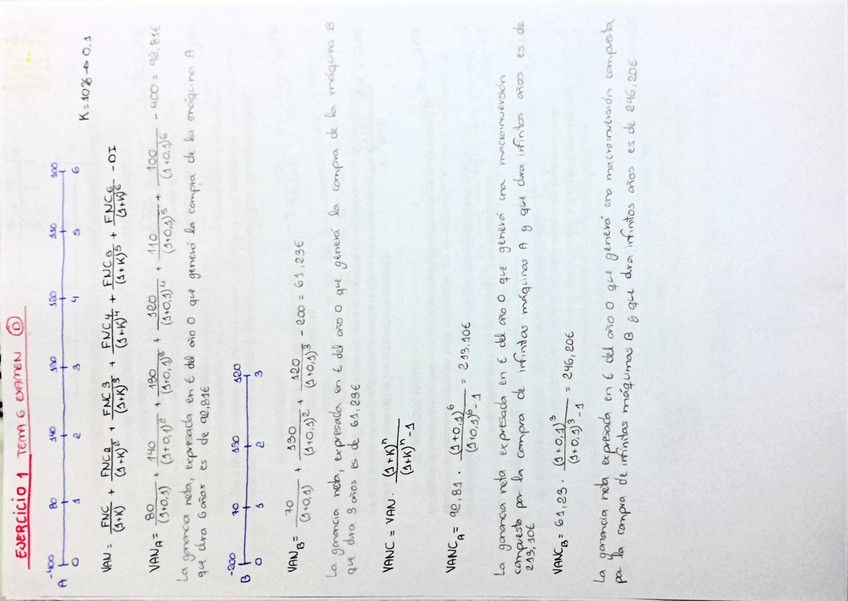 EJERCICIO 1 TEMA 6 EXAMEN ①
-400 80 140 130 120 110 100
A
0 1 2 3 4 5 6
K=10% → 0,1
VAN = FNC/(1+K) + FNC2/(1+K)^2 + FNC3/(1+K)^3 + FNC4/(1+K)^4 + FNC5/(1+K)^5 + FNC6/(1+K)^6 - OI
VAN_A = 80/(1+0,1) + 140/(1+0,1)^2 + 130/(1+0,1)^3 + 120/(1+0,1)^4 + 110/(1+0,1)^5 + 100/(1+0,1)^6 - 400 = 92,81€
La ganancia neta, expresada en € del año 0 que generó la compra de la máquina A
que dura 6 años es de 92,81€
-200 70 130 120
B
0 1 2 3
VAN_B = 70/(1+0,1) + 130/(1+0,1)^2 + 120/(1+0,1)^3 - 200 = 61,23€
La ganancia neta, expresada en € del año 0 que generó la compra de la máquina B
que dura 3 años es de 61,23€
VANC = VAN · (1+K)^n/(1+K)^n-1
VANC_A = 92,81 · (1+0,1)^6/(1+0,1)^6-1 = 213,10€
La ganancia neta expresada en € del año 0 que generó una macroinversión
compuesta por la compra de infinitas máquinas A y que dura infinitos años es de
213,10€
VANC_B = 61,23 · (1+0,1)^3/(1+0,1)^3-1 = 246,20€
La ganancia neta expresada en € del año 0 que generó una macroinversión compuesta
por la compra de infinitas máquinas B y que dura infinitos años es de 246,20€